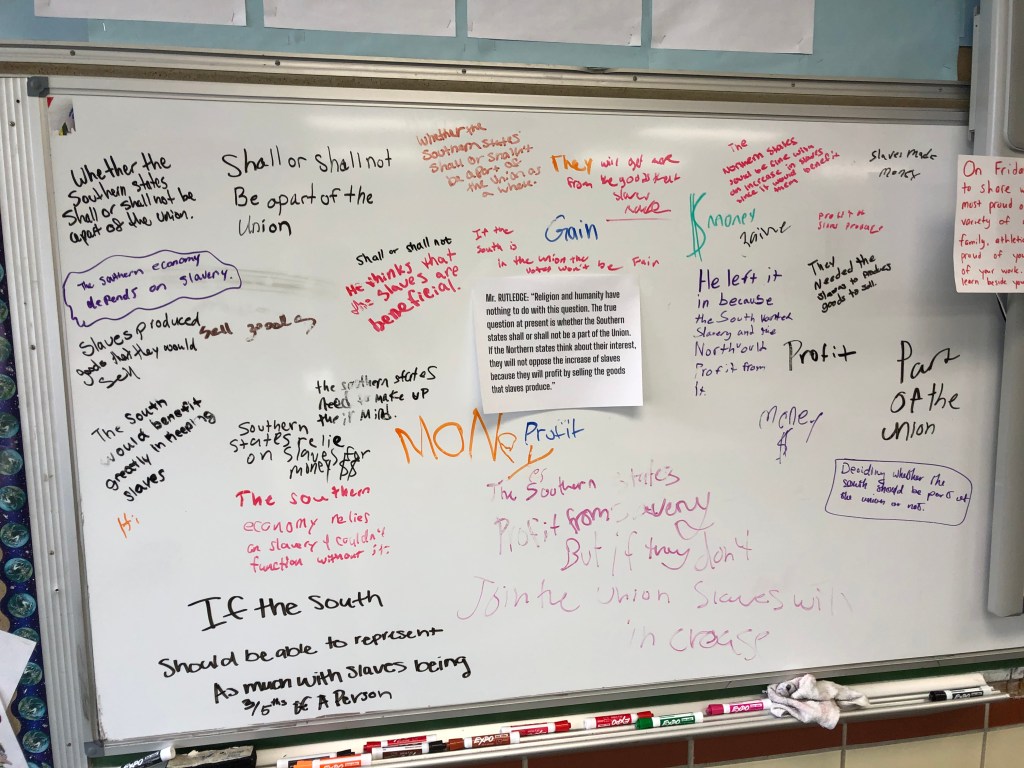 Whether the
Southern states
Shall or shall not be
apart of the Union.
Shall or Shall not
Be apart of the
Union
Whether the
Southern States
Shall or Shall not
be apart of
the Union as
a whole.
They will get more
from the goods that
slaves
made
The
Northern States
would be fine with
an increase in slaves
since it would benefit
them
Slaves made
money
On Frida
to share w
most proud o
variety of
family, athleti
proud of you
of your work.
learn beside you
The Southern economy
depends on slavery.
shall or shall not
He thinks that
the slaves are
beneficial.
If the
South is
in the union the
votes won't be Fair
Gain
$ money
Profit of
slaves produce
They
Needed the
slaves to produce
goods to sell.
Slaves produced
goods that they would
sell
sell goods
Mr. RUTLEDGE: "Religion and humanity have
nothing to do with this question. The true
question at present is whether the Southern
states shall or shall not be a part of the Union.
If the Northern states think about their interest,
they will not oppose the increase of slaves
because they will profit by selling the goods
that slaves produce."
He left it
in because
the South wanted
Slavery and the
North would
Profit from
It.
Profit
Part
of the
union
The South
would benefit
greatly in keeping
slaves
the southern states
need to make up
their mind.
Southern
states relie
on slaves for
money $$
MONey
Profit
money
$
Deciding whether the
south should be part of
the union or not.
Hi
The southern
economy relies
on slavery & couldn't
function without it.
The Southern States
Profit from Slavery
But if they don't
Join the Union Slaves will
increase
If the South
Should be able to represent
As much with slaves being
3/5ths of A Person
EXPO
EXPO
EXPO
EXPO
EXPO